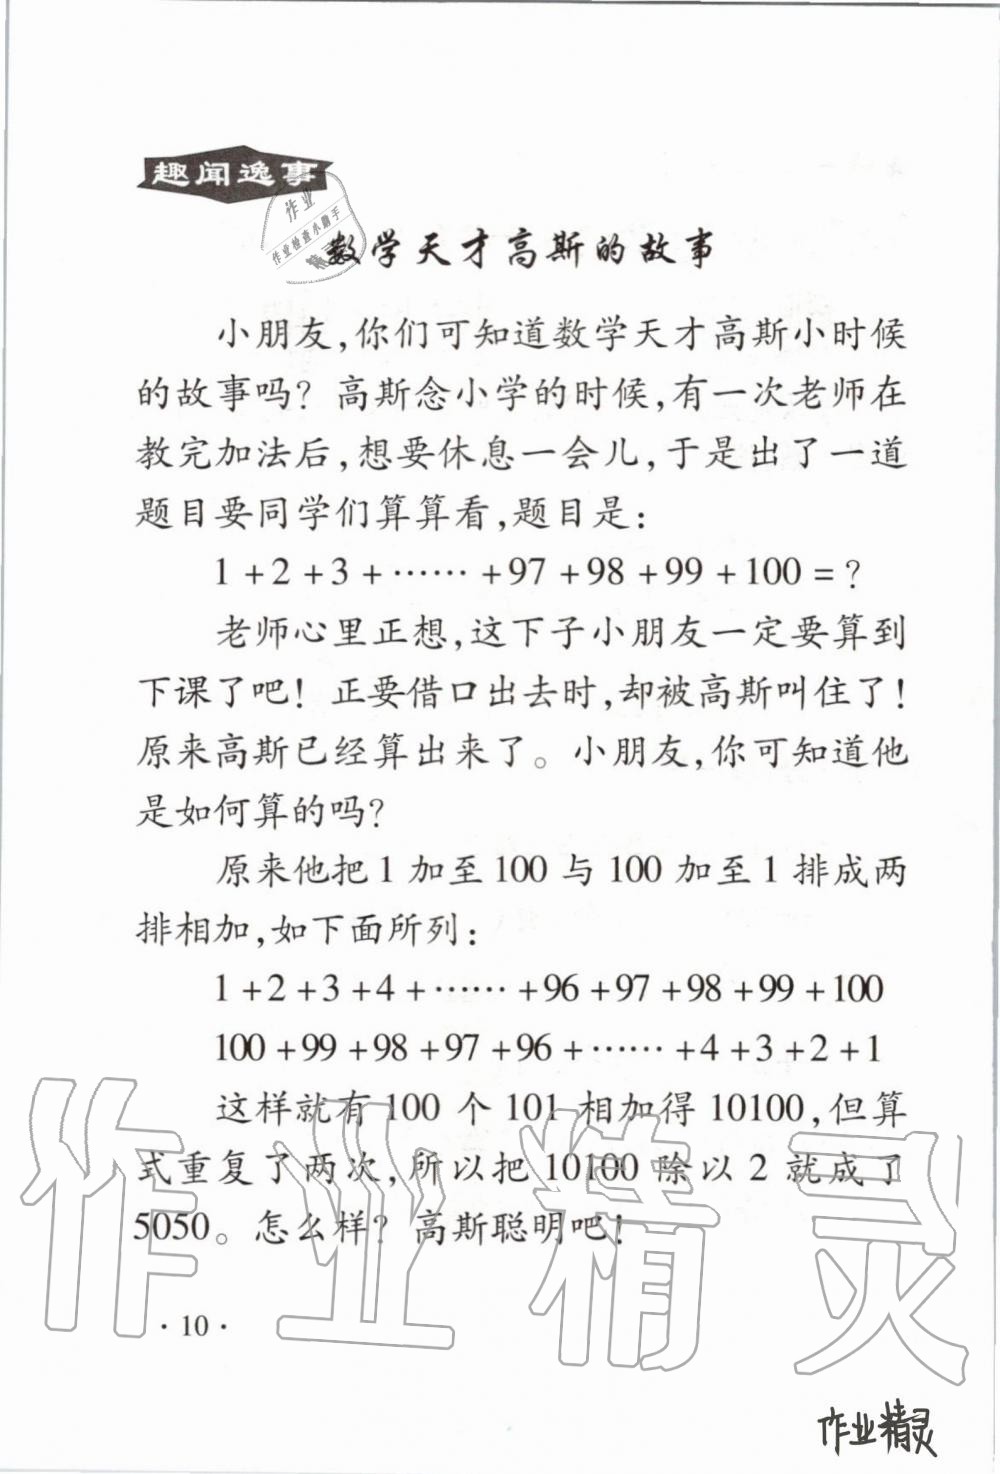 趣闻逸事
作业
作业检查小助手
数学天才高斯的故事
小朋友,你们可知道数学天才高斯小时候
的故事吗？高斯念小学的时候,有一次老师在
教完加法后,想要休息一会儿,于是出了一道
题目要同学们算算看,题目是：
1+2+3+……+97+98+99+100=?
老师心里正想,这下子小朋友一定要算到
下课了吧！正要借口出去时,却被高斯叫住了！
原来高斯已经算出来了。小朋友,你可知道他
是如何算的吗？
原来他把1加至100与100加至1排成两
排相加,如下面所列：
1+2+3+4+……+96+97+98+99+100
100+99+98+97+96+……+4+3+2+1
这样就有100个101相加得10100,但算
式重复了两次,所以把10100除以2就成了
5050。怎么样？高斯聪明吧！
作业精灵
·10·
作业精灵